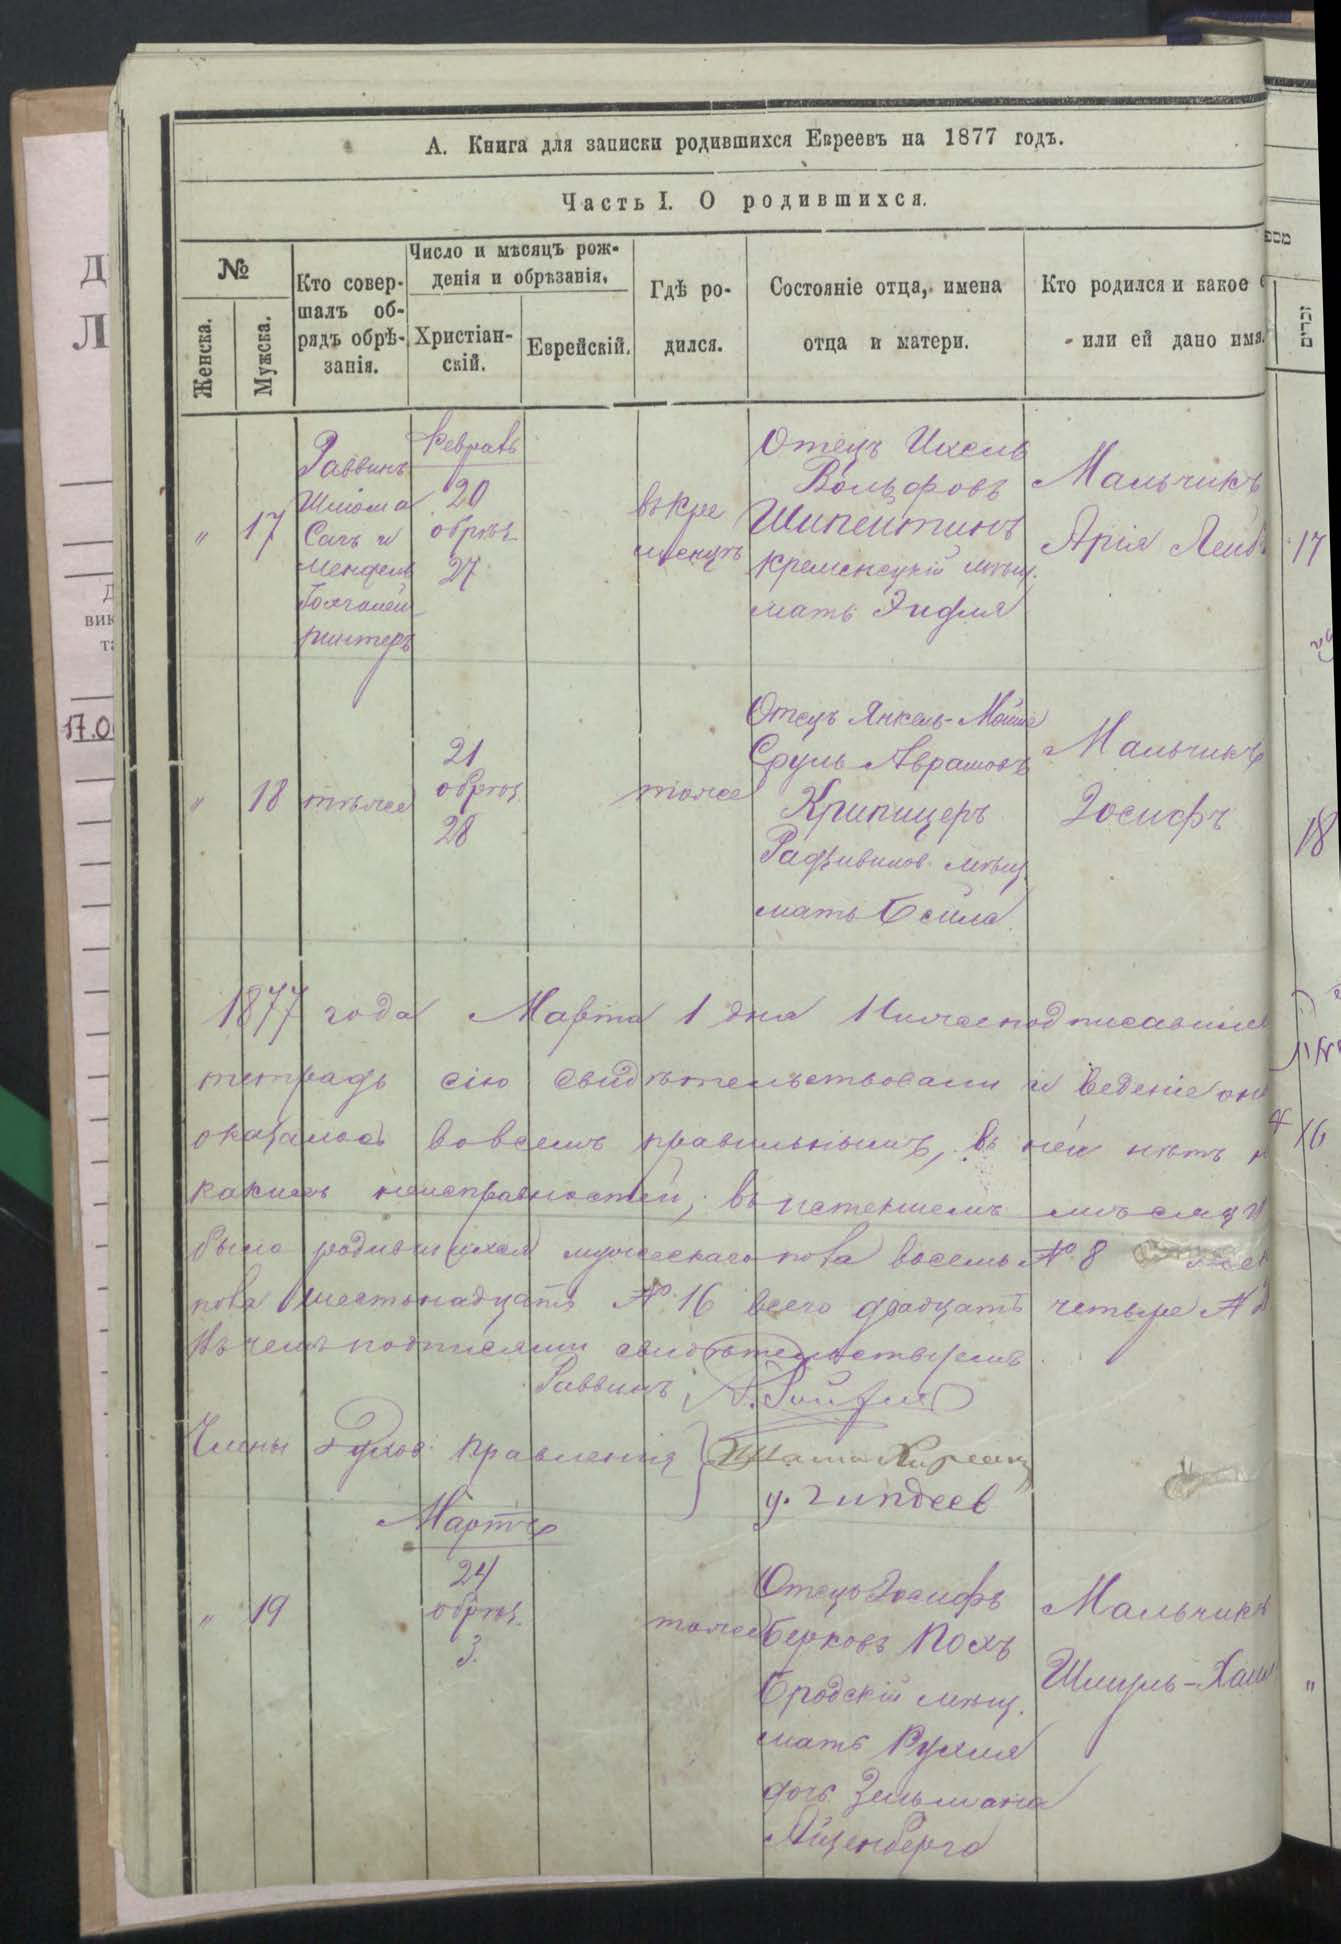 А. Книга для записки родившихся Евреевъ на 1877 годъ.
Часть I. О родившихся.
№
Женска.
Мужска.
Кто совер-
шалъ об-
рядъ обрѣ-
занія.
Число и мѣсяцъ рож-
денія и обрѣзанія.
Христіан-
скій.
Еврейскій.
Гдѣ ро-
дился.
Состояніе отца, имена
отца и матери.
Кто родился и какое
или ей дано имя.
" 17
Раввинъ
Шліома
Сачъ и
Мендель
Февраль
20
обрѣз.
27
въ Кре
менцѣ
Отецъ Ихель
Вольфовъ
Шипейтинъ
кременецкій мѣщ.
мать Эидля
Мальчикъ
Арія Лейб
17
" 18
тѣже
21
обрѣз.
28
тоже
Отецъ Янкель-Мойше
Сруль Аврамовъ
Крипицеръ
Радзивилов. мѣщ.
мать Бейла.
Мальчикъ
Іосифъ
18
1877 года Марта 1 дня Нижеподписавшіе
тетрадь сію свидѣтельствовали и веденіе
оказалось вовсемъ правильнымъ, въ ней нѣтъ
какихъ неисправностей, въ истекшемъ мѣсяцѣ
было родившихся мужескаго пола восемь № 8
пола шестьнадцать № 16 всего двадцать четыре №
Въ чемъ подписями свидѣтельствуемъ
Раввинъ
Члены Духов. Правленія
16
Мартъ
" 19
24
обрѣз.
3.
тоже
Отецъ Іосифъ
Берковъ Похъ
Бродскій мѣщ.
мать Рухля
дочь Зельмана
Айзенберга
Мальчикъ
Шмуль-Хаим
"